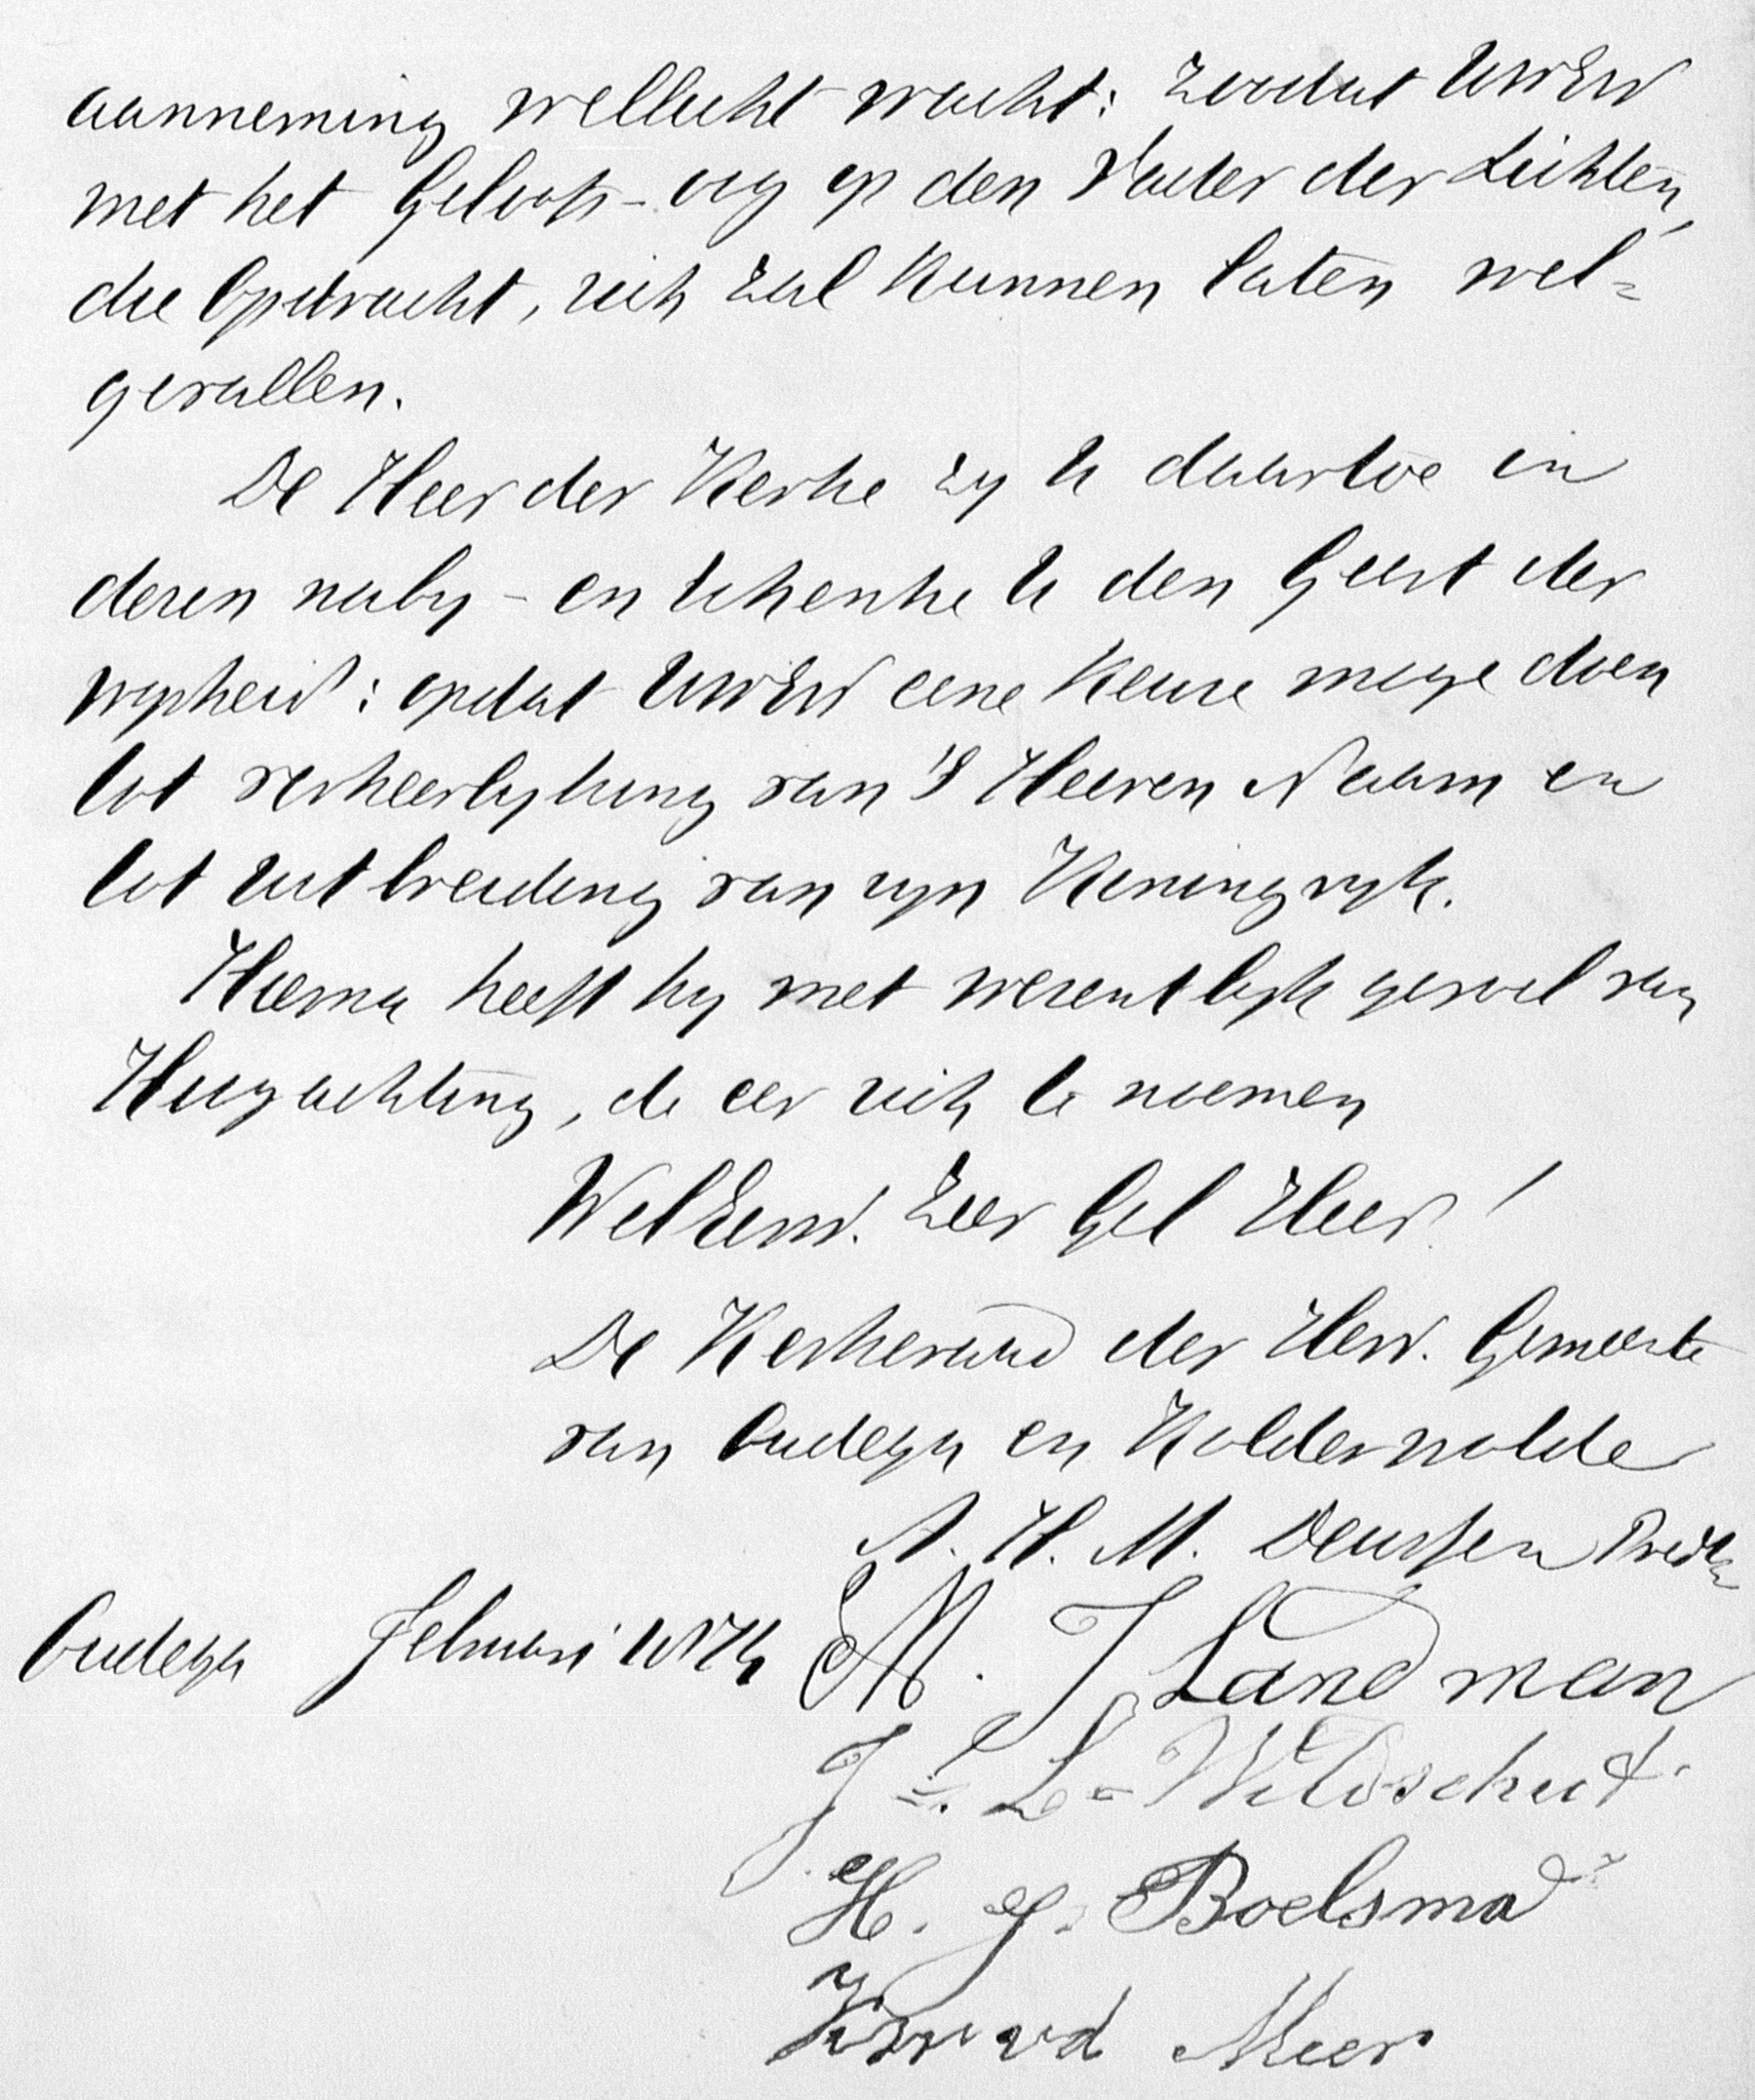 aanneming wellicht wacht: zoodat UwEw
met het Geloofs-oog op den Vader der Lichten,
die Opdracht, zich zal kunnen laten wel=
gevallen.
De Heer der Kerke zy U daartoe in
dezen naby - en schenke U den Geest der
wysheid: opdat UwEw eene Keuze moge doen
tot verheerlyking van 's Heeren Naam en
tot uitbreiding van zyn Koningryk.
Hierna heeft hy met wezentlyk gevoel van
Hoogachting, de eer zich te noemen
WelEerw. Zeer Gel Heer!
De Kerkeraad der Herv. Gemeente
van Oudega en Kolderwolde
A. H. M. Deussen Pred
Oudega Februari
M. J Landman
J. L. Wildschut
H. J. Boelsma
vd Meer